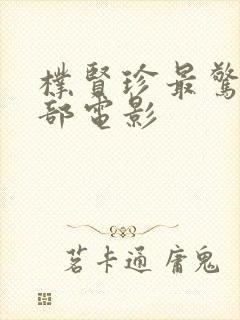 樸賢珍最驚
部電影
茗卡通 庸鬼